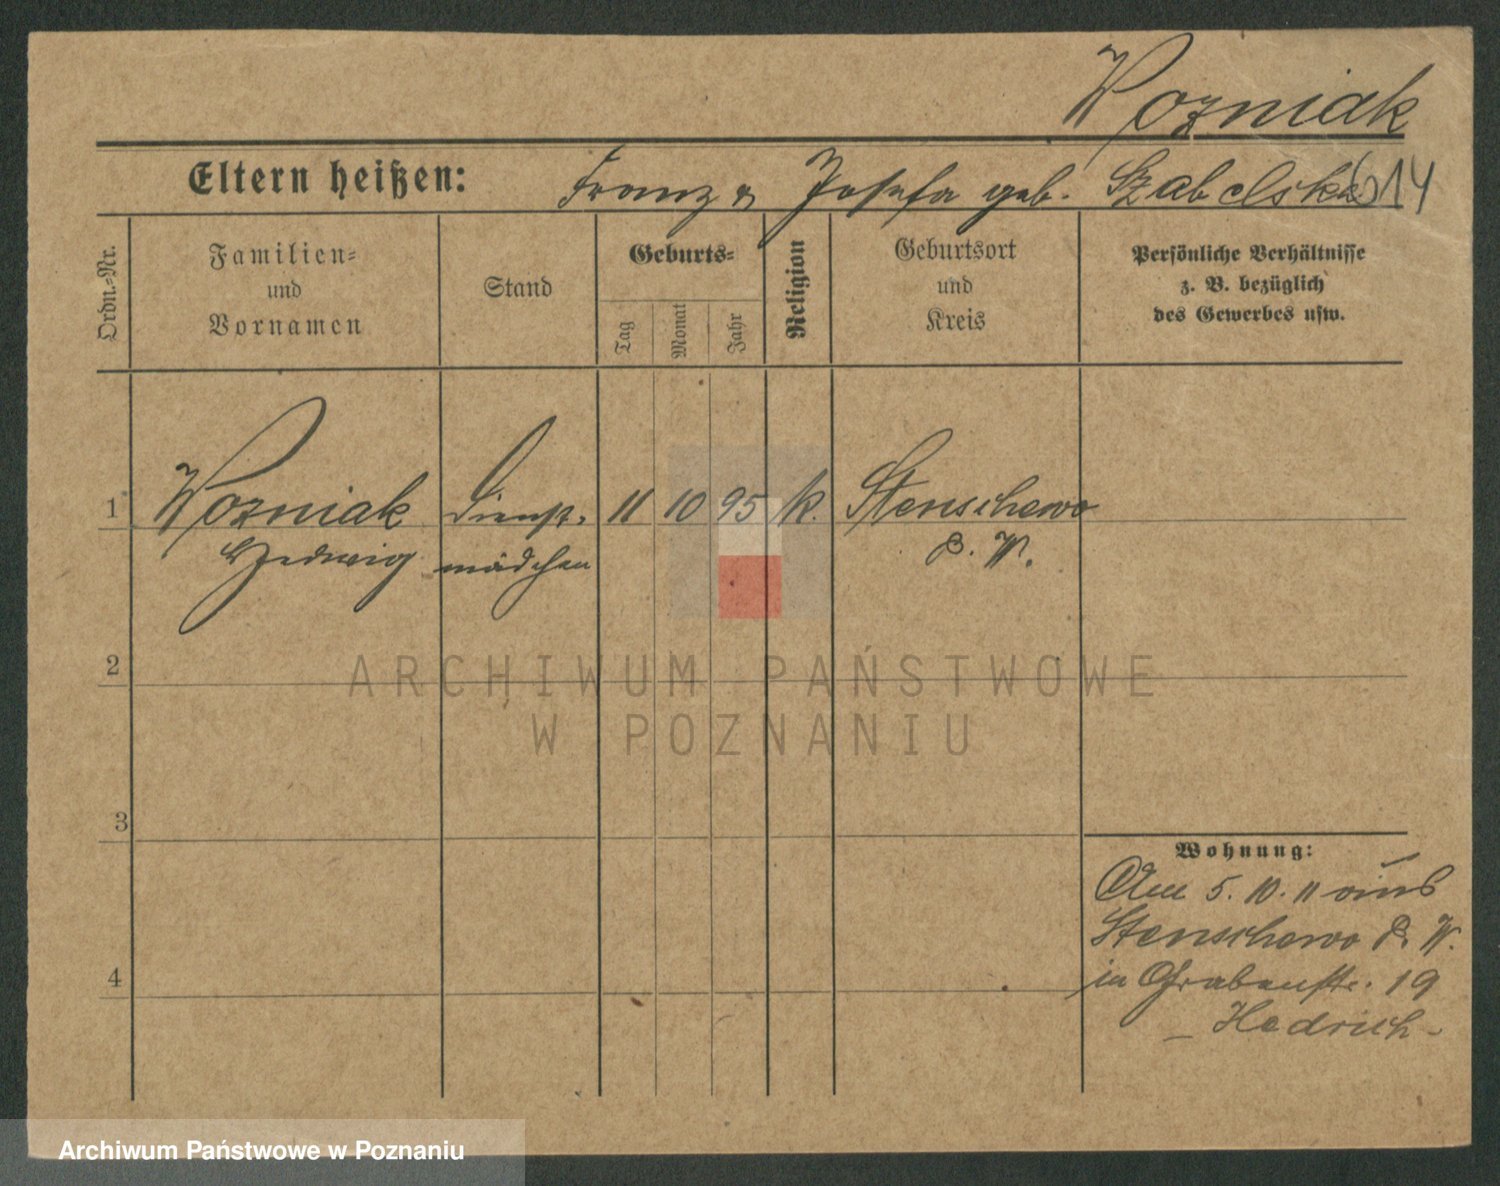 Wozniak
Eltern heißen: Franz & Josefa geb. Szabelska
614
Ordn.-Nr.
Familien-
und
Vornamen
Stand
Geburts-
Tag
Monat
Jahr
Religion
Geburtsort
und
Kreis
Persönliche Verhältnisse
z. B. bezüglich
des Gewerbes usw.
1 Wozniak Dienst- 11 10 95 k. Stenschewo
Hedwig mädchen P. W.
2
ARCHIWUM PAŃSTWOWE
W POZNANIU
3
Wohnung:
Am 5. 10. 11 aus
Stenschewo P. W.
in Grabenstr. 19
– Hedrich –
4
Archiwum Państwowe w Poznaniu